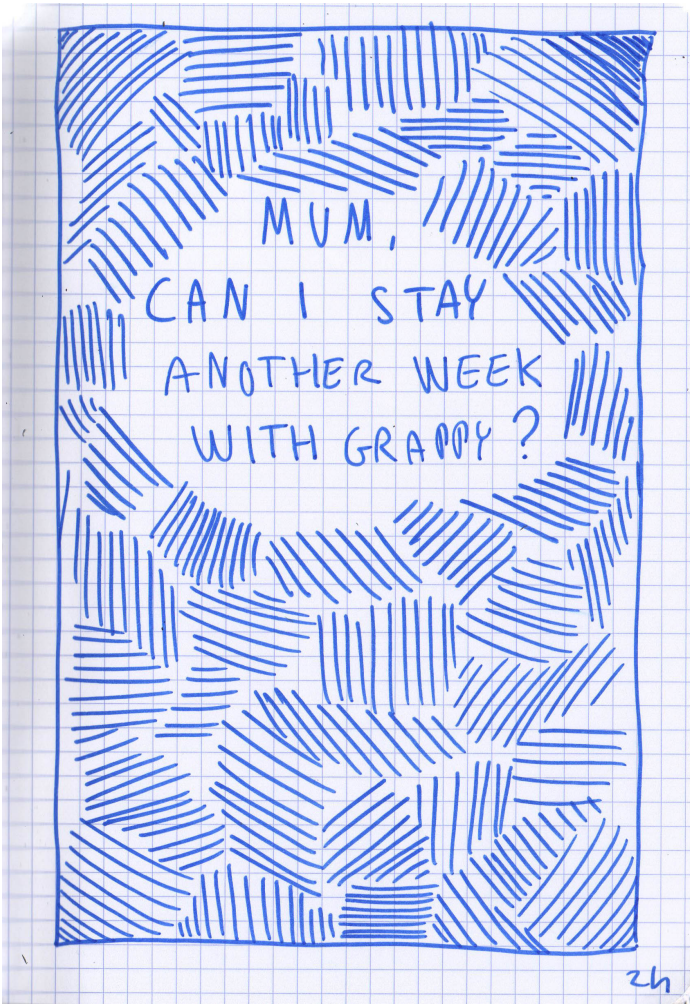 MUM,
CAN I STAY
ANOTHER WEEK
WITH GRAPPY?
24